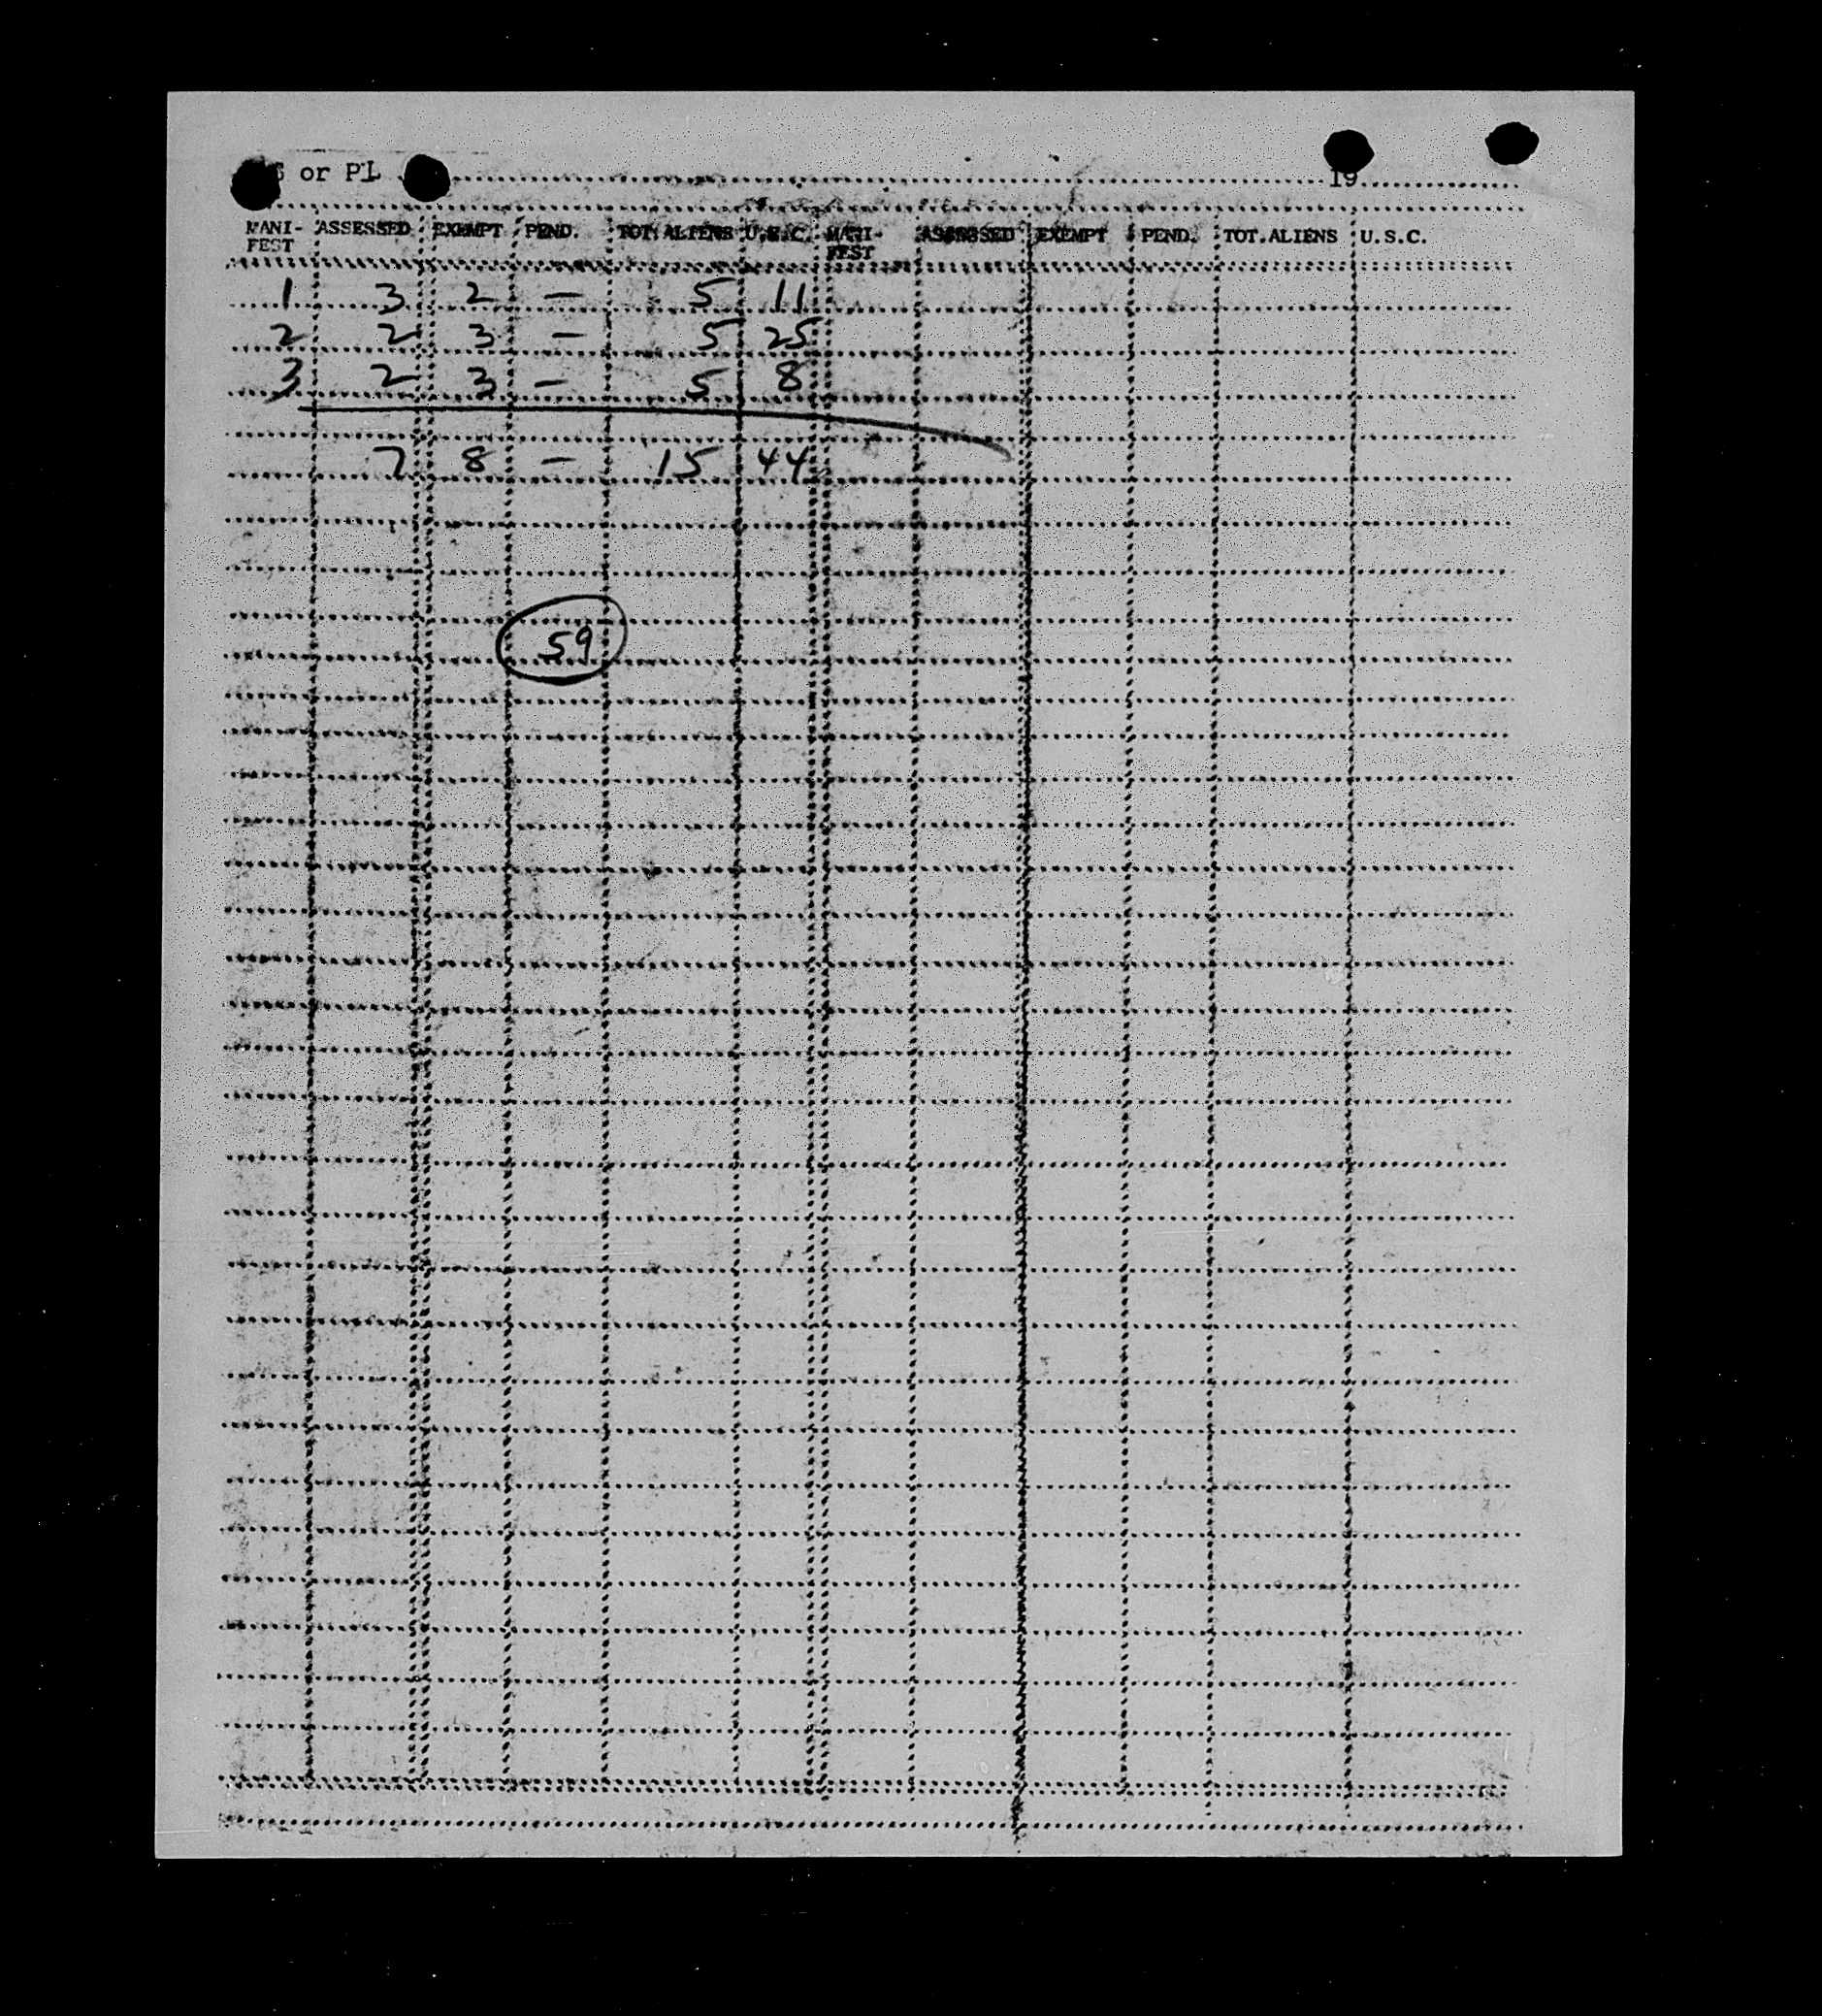 or PL 19
MANI- ASSESSED EXEMPT PEND. TOT. ALIENS U.S.C. MANI- ASSESSED EXEMPT PEND. TOT. ALIENS U.S.C.
FEST FEST
1 3 2 — 5 11
2 2 3 — 5 25
3 2 3 — 5 8
7 8 — 15 44
59